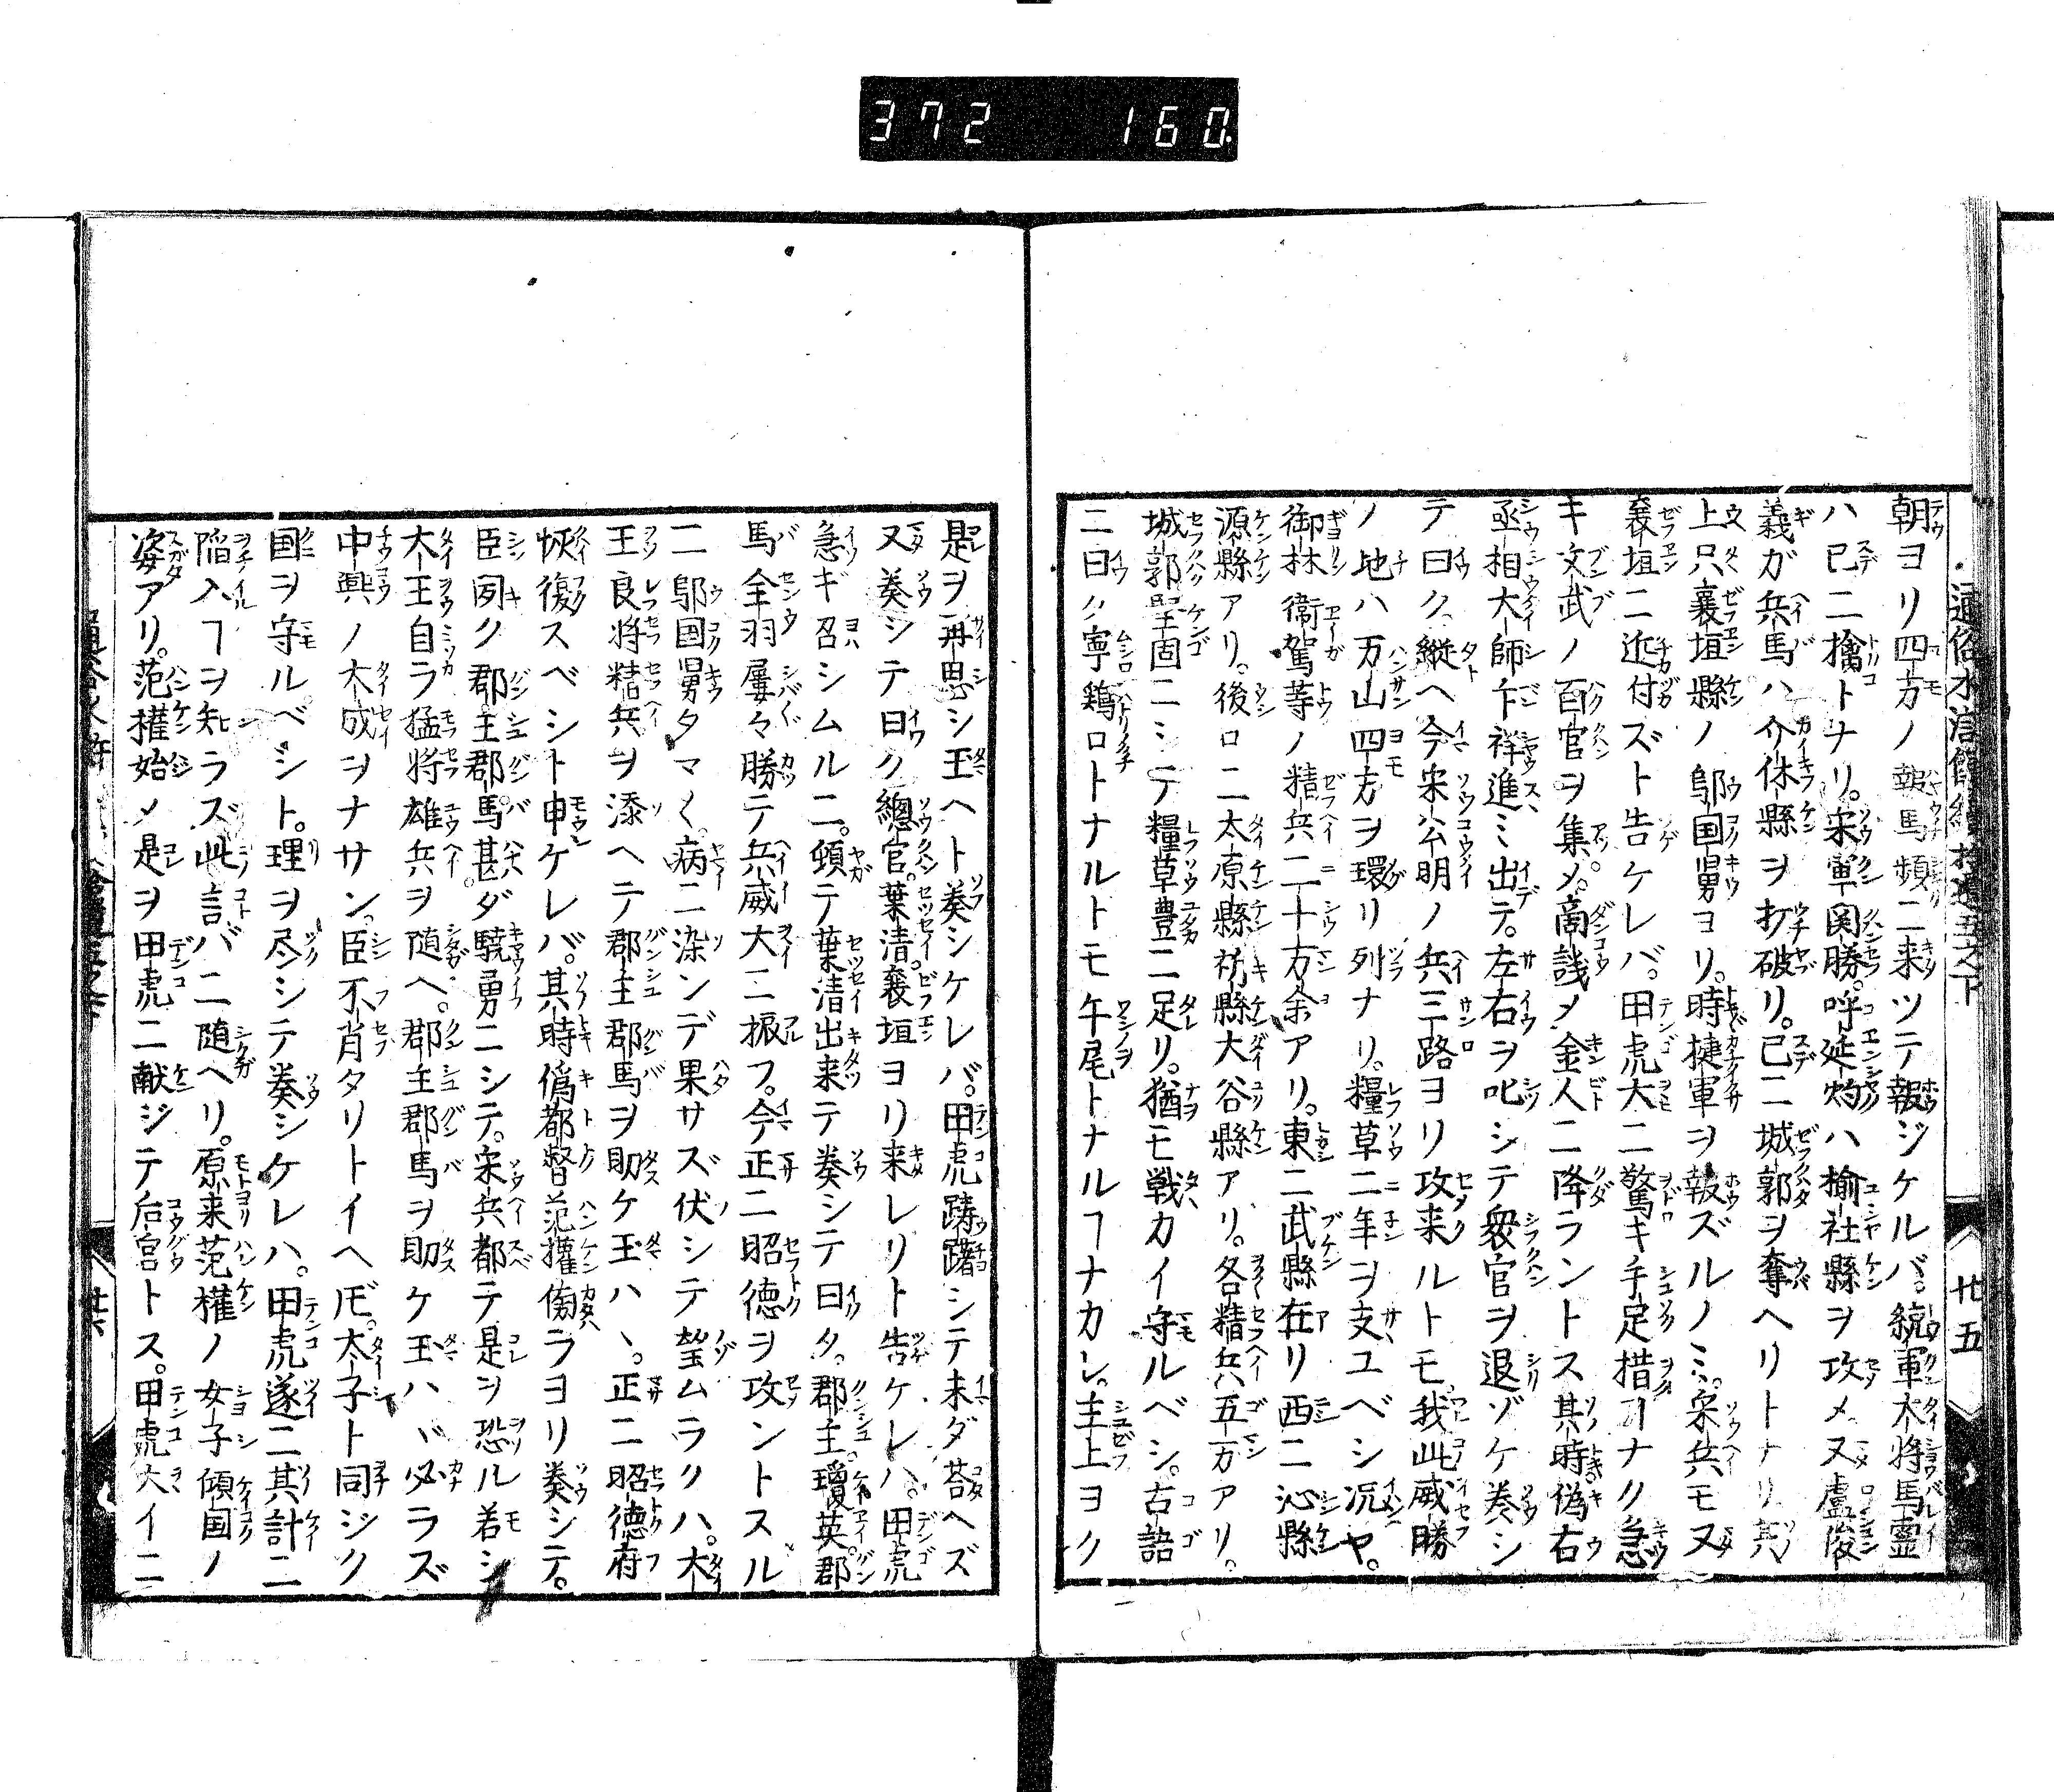 372 160
通俗水滸傳續拾遺五之下
廿五
朝ヨリ四方ノ報馬頻ニ来ツテ報ジケルバ。統軍大将馬霊
ハ已ニ擒トナリ。宋軍関勝。呼延灼ハ楡社縣ヲ攻メ又盧俊
義ガ兵馬ハ介休縣ヲ打破リ。已ニ城郭ヲ奪ヘリトナリ其
上只襄垣縣ノ鄔国舅ヨリ。時捷軍ヲ報ズルノミ。宋兵モ又
襄垣ニ近付ズト告ケレバ。田虎大ニ驚キ手足措ヿナク急
キ文武ノ百官ヲ集メ。商議メ金人ニ降ラントス其時偽右
丞相大師卞祥進ミ出テ。左右ヲ叱シテ衆官ヲ退ゾケ奏シ
テ曰ク。縦ヘ今宋公明ノ兵三路ヨリ攻来ルトモ。我此威勝
ノ地ハ万山四方ヲ環リ列ナリ。糧草二年ヲ支ユベシ況ヤ。
御林衛駕等ノ精兵二十万余アリ。東ニ武縣在リ西ニ沁縣
源縣アリ。後ロニ太原縣祈縣大谷縣アリ。各精兵五万アリ。
城郭堅固ニシテ糧草豊ニ足リ。猶モ戦カイ守ルベシ。古語
ニ曰ク寧鶏ロトナルトモ午尾トナルヿナカレ。主上ヨク
是ヲ再思シ玉ヘト奏シケレバ。田虎躊躇シテ未ダ荅ヘズ
又奏シテ曰ク總官。葉清。襄垣ヨリ来レリト告ケレハ。田虎
急ギ召シムルニ。頓テ葉清出来テ奏シテ曰ク。郡主。瓊英。郡
馬全羽屡々勝テ兵威大ニ振フ。今正ニ昭徳ヲ攻ントスル
ニ鄔国舅タマ〱病ニ染ンデ果サズ伏シテ望ムラクハ。大
王良将精兵ヲ添ヘテ郡主郡馬ヲ助ケ玉ハヽ。正ニ昭徳府
恢復スベシト申ケレバ。其時偽都督范權傍ラヨリ奏シテ。
臣聞ク郡主郡馬甚ダ驍勇ニシテ。宋兵都テ是ヲ恐ル若シ
大王自ラ猛将雄兵ヲ随ヘ。郡主郡馬ヲ助ケ玉ハヾ必ラズ
中興ノ大成ヲナサン。臣不肖タリトイヘ𪜈。太子ト同ジク
国ヲ守ルベシト。理ヲ尽シテ奏シケレハ。田虎遂ニ其計ニ
陥入ヿヲ知ラズ此言バニ随ヘリ。原来范權ノ女子傾国ノ
姿アリ。范權始メ是ヲ田虎ニ献ジテ后宮トス。田虎大イニ